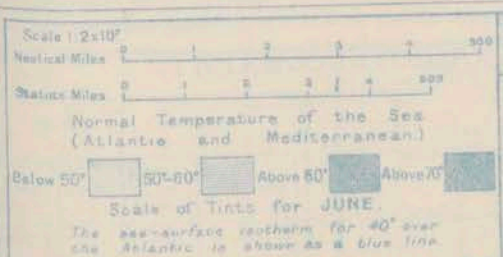 Scale 1:2×10⁷
Nautical Miles 0 1 2 3 4 500
Statute Miles 0 1 2 3 4 500
Normal Temperature of the Sea
(Atlantic and Mediterranean.)
Below 50° 50°-60° Above 60° Above 70°
Scale of Tints for JUNE.
The sea-surface isotherm for 40° over
the Atlantic is shown as a blue line.